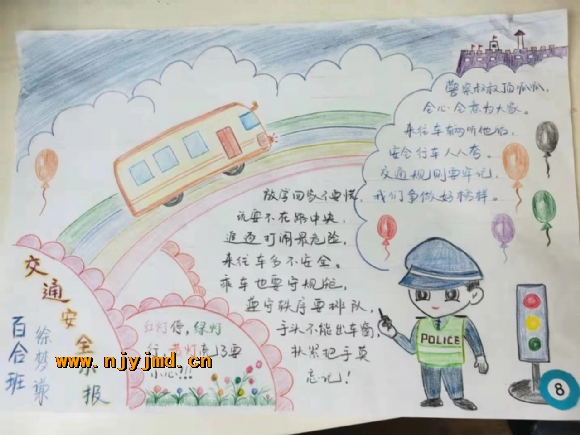 警察叔叔顶呱呱,
全心全意为大家。
来往车辆听他的,
安全行车人人夸。
交通规则要牢记,
我们争做好榜样。
放学回家不要慌,
玩耍不在路中央,
追逐打闹最危险,
来往车多不安全。
乘车也要守规范,
遵守秩序要排队,
手头不能出车窗,
扒紧把手莫
忘记!
交通安全小报
百合班
徐梦
红灯停,绿灯
行,黄灯亮了要
小心!!!
POLICE
8
www.njyjmd.cn